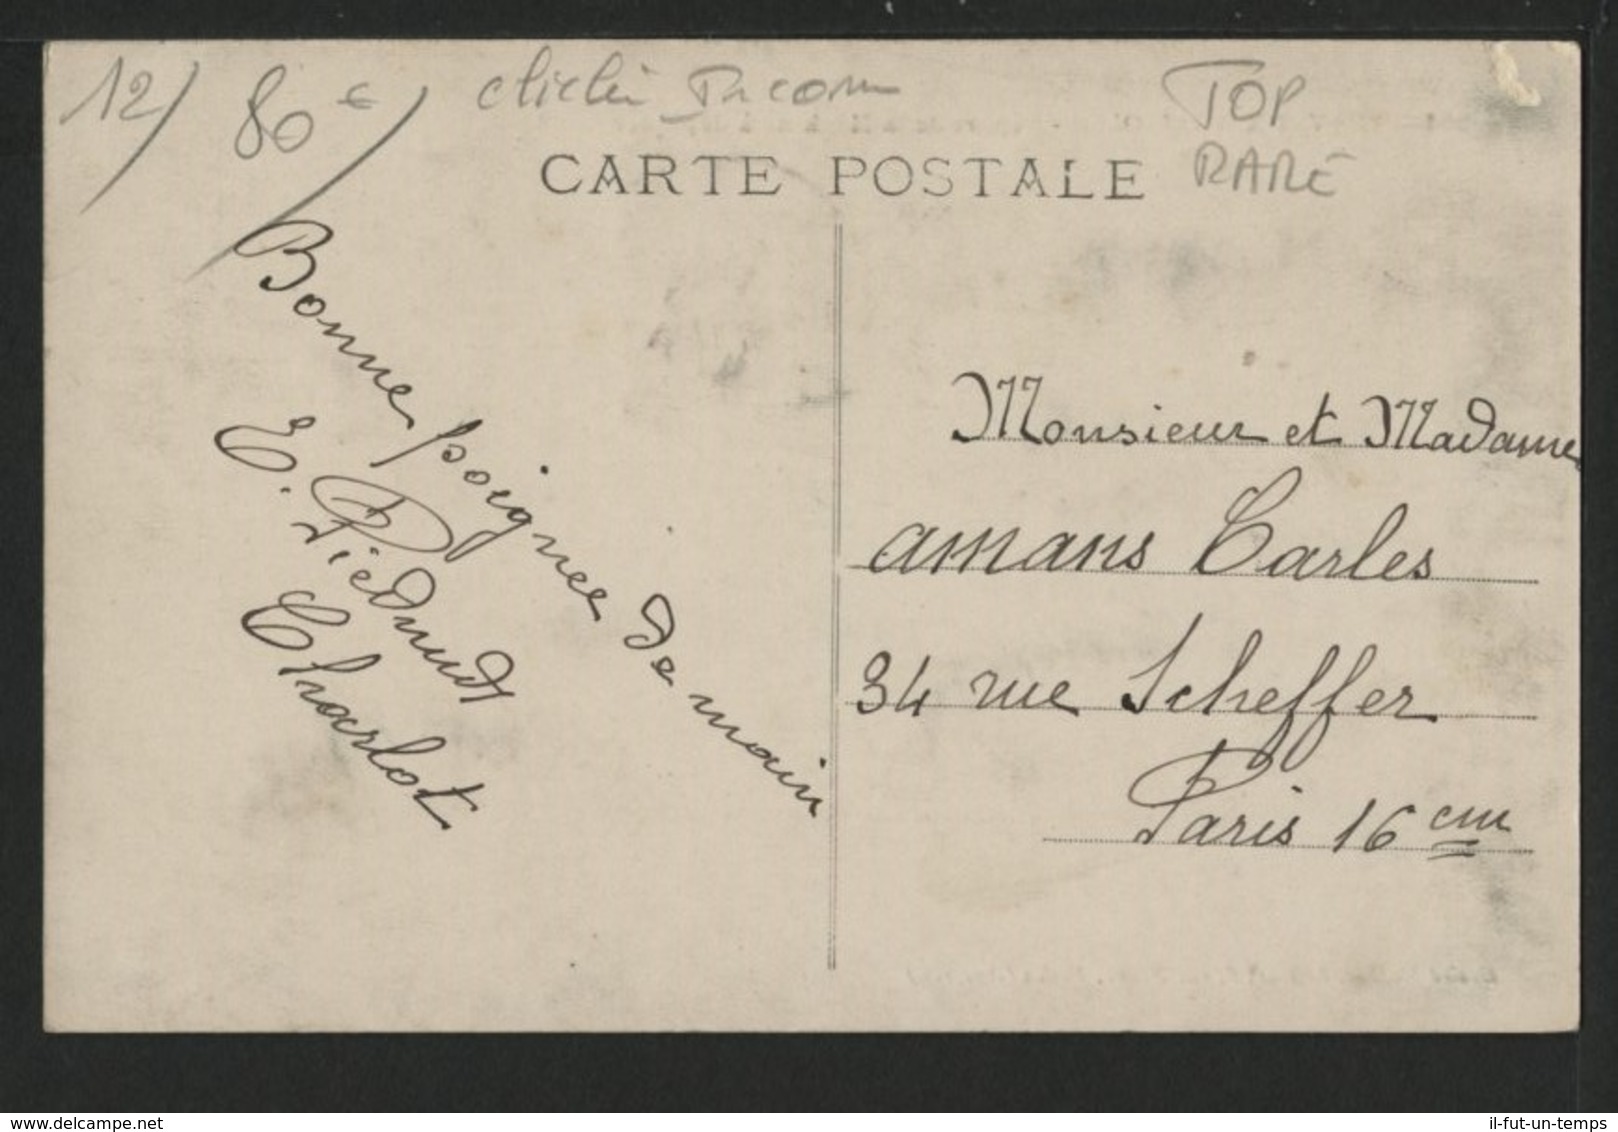 12/
80 €/
cliché
TOP
RARE
CARTE POSTALE
Bonne poignee de main
E. Piednud
Charlot
Monsieur et Madame
amans Carles
34 rue Scheffer
Paris 16 em
www.delcampe.net
il-fut-un-temps